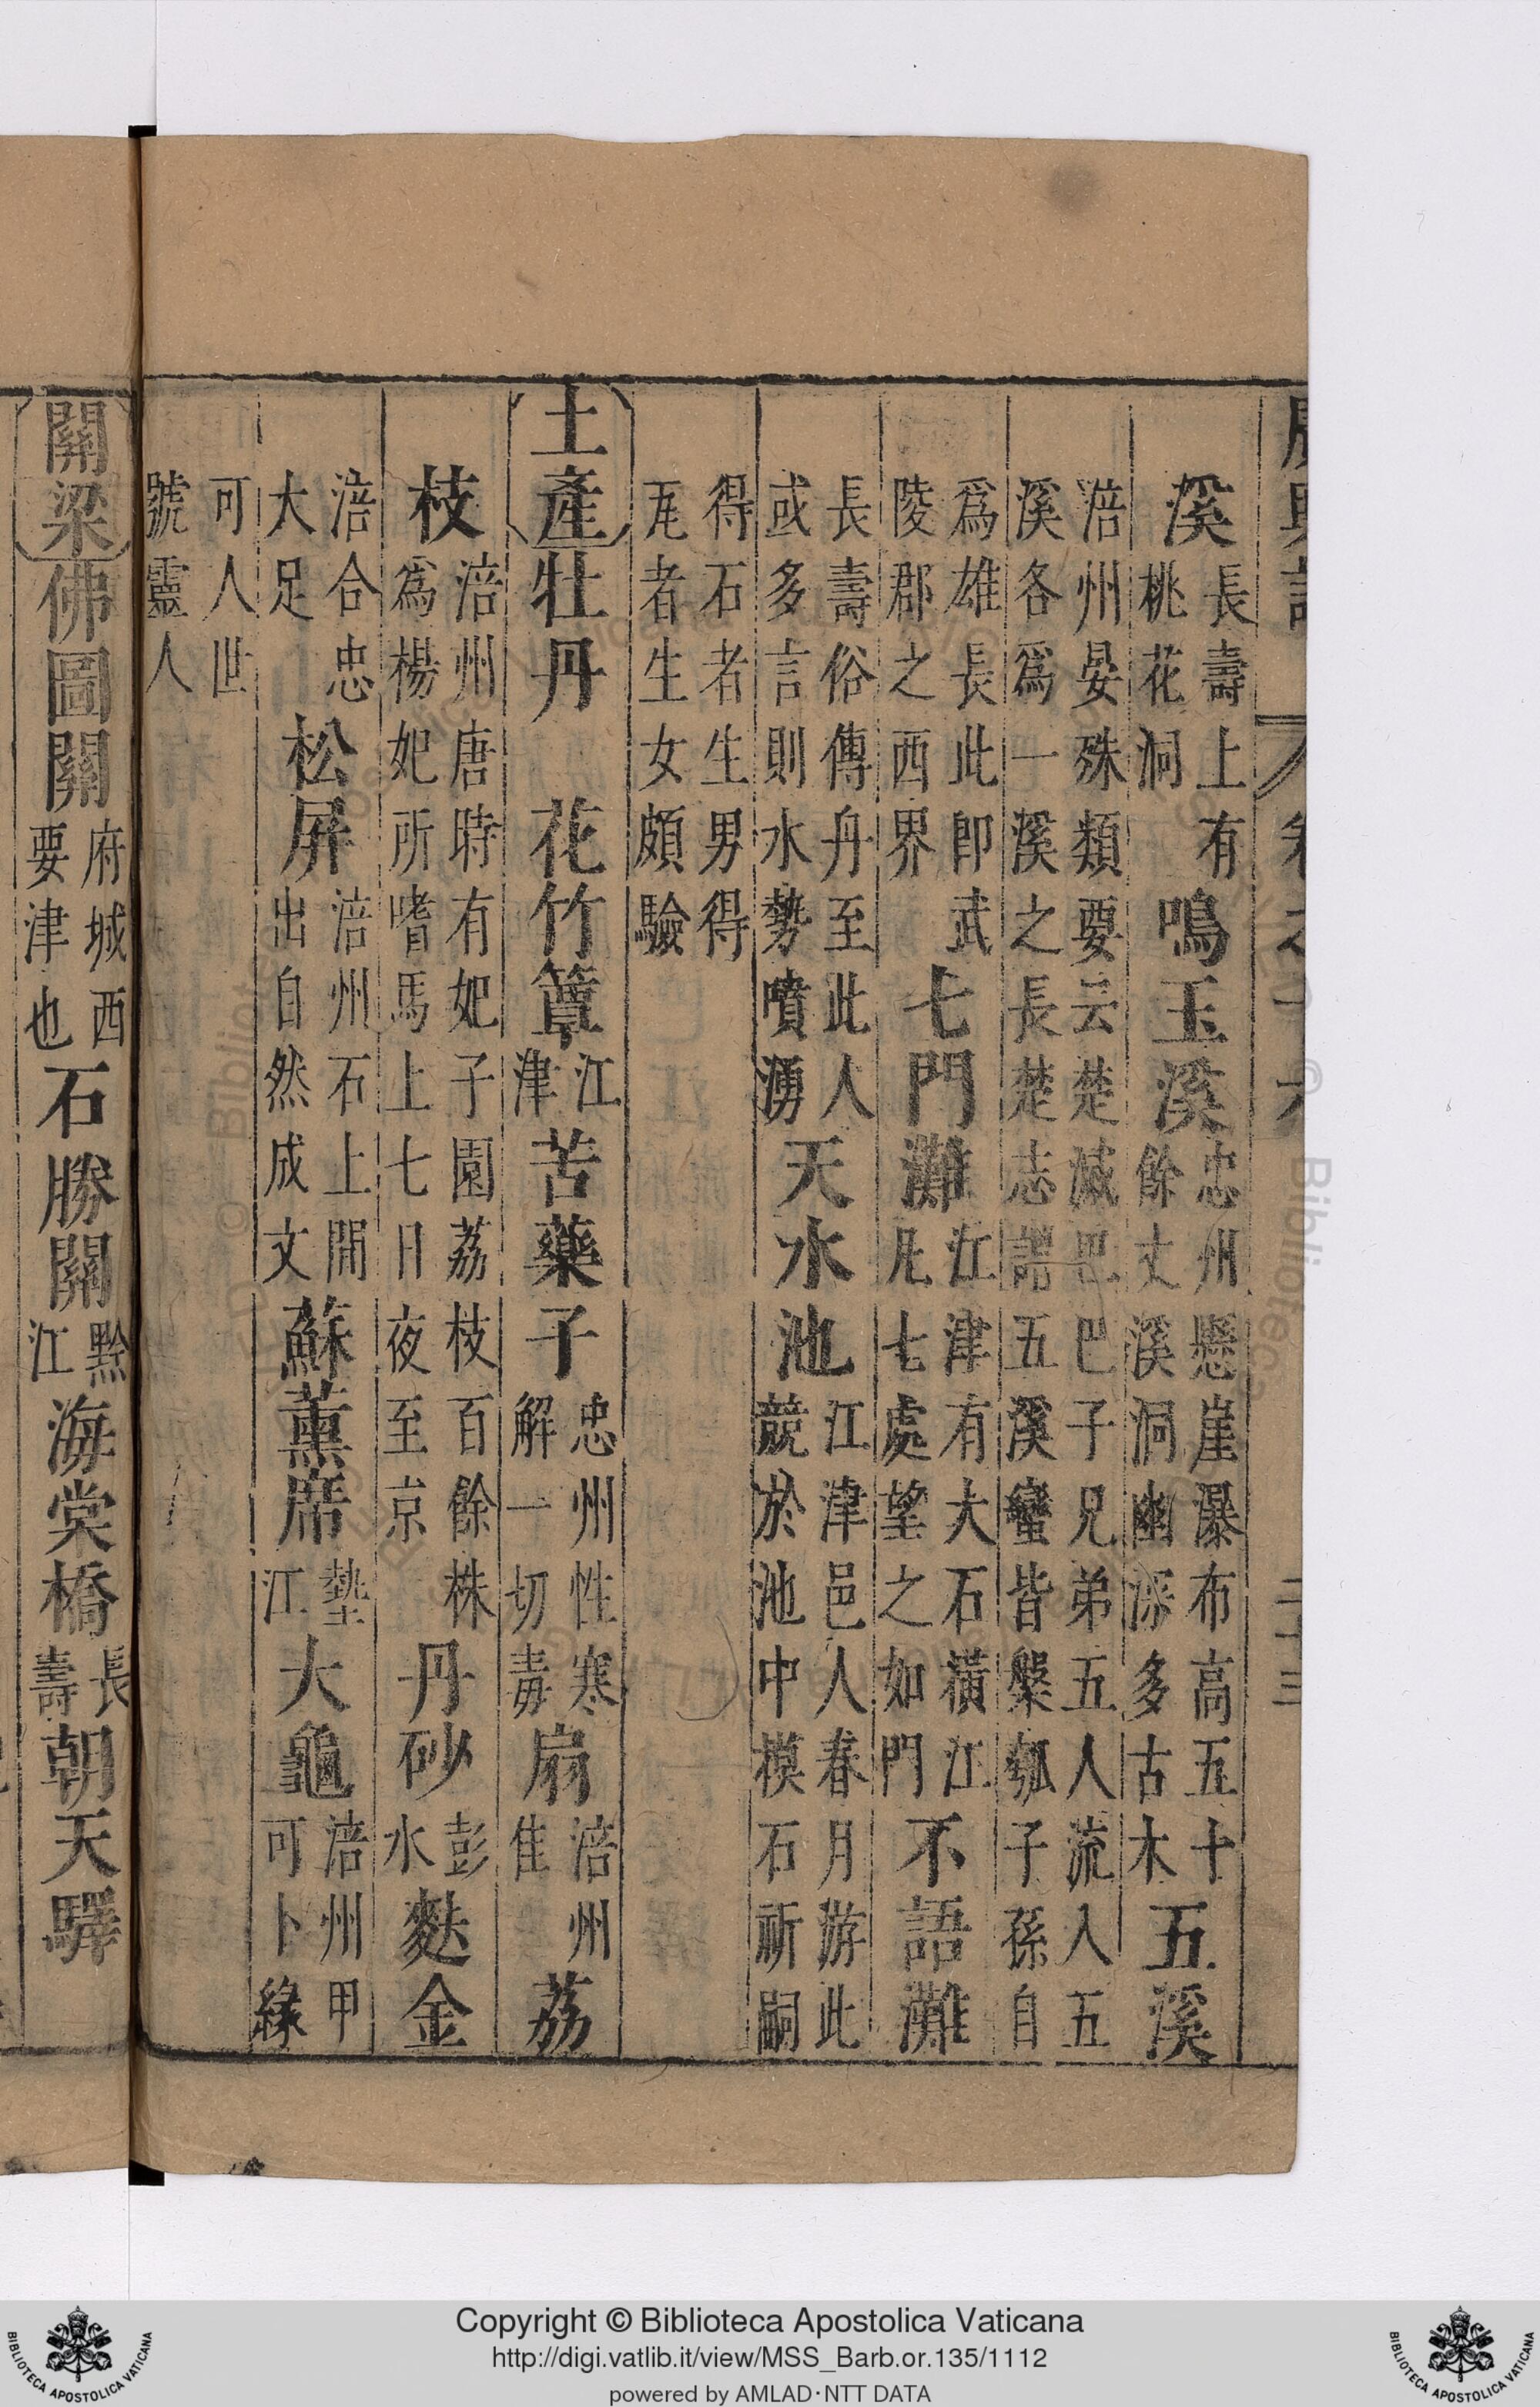 廣輿記 卷之十六 二十三
溪 長壽上有桃花洞 鳴玉溪 忠州懸崖瀑布高五十餘丈溪洞幽深多古木 五溪
涪州晏殊類要云楚滅巴巴子兄弟五人流入五溪各爲一溪之長楚志謂五溪蠻皆槃瓠子孫自
爲雄長此卽武陵郡之西界 七門灘 江津有大石橫江凡七處望之如門 不語灘
長壽俗傳舟至此人或多言則水勢噴湧 天水池 江津邑人春月游此競於池中摸石祈嗣
得石者生男得瓦者生女頗驗
土產 牡丹 花竹簟 江津 苦藥子 忠州性寒解一切毒 扇 涪州佳 荔
枝 涪州唐時有妃子園荔枝百餘株爲楊妃所嗜馬上七日夜至京 丹砂 彭水 麩金
涪合忠大足 松屏 涪州石上閒出自然成文 蘇薰席 墊江 大龜 涪州甲可卜緣
可人世號靈人
關梁 佛圖關 府城西要津也 石勝關 黔江 海棠橋 長壽 朝天驛
Copyright © Biblioteca Apostolica Vaticana
http://digi.vatlib.it/view/MSS_Barb.or.135/1112
powered by AMLAD·NTT DATA
BIBLIOTECA APOSTOLICA VATICANA
BIBLIOTECA APOSTOLICA VATICANA